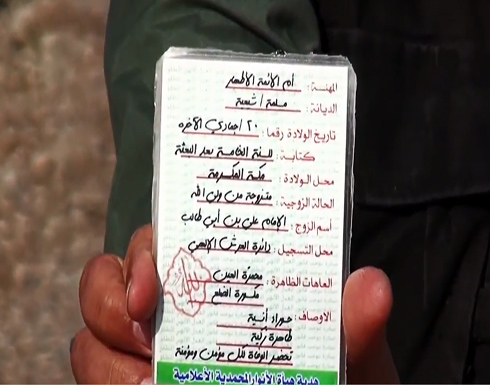 المهنة : أم الأئمة الأطهار
الديانة : مسلمة / شيعية
تاريخ الولادة رقما : ٢٠ / جمادي الآخره
كتابة : للسنة الخامسة بعد البعثة
محل الولادة : مكة المكرمة
الحالة الزوجية : متزوجة من ولي الله
أسم الزوج : الإمام علي بن أبي طالب
محل التسجيل : دائرة العرش الإلهي
العاهات الظاهرة : محمرّة العين
مكسورة الضلع
الأوصاف : حوراء أنسية
طاهرة زكية
تحضر الوفاة لكل مؤمن ومؤمنة
هدية هيأة الأنوار المحمدية الأعلامية